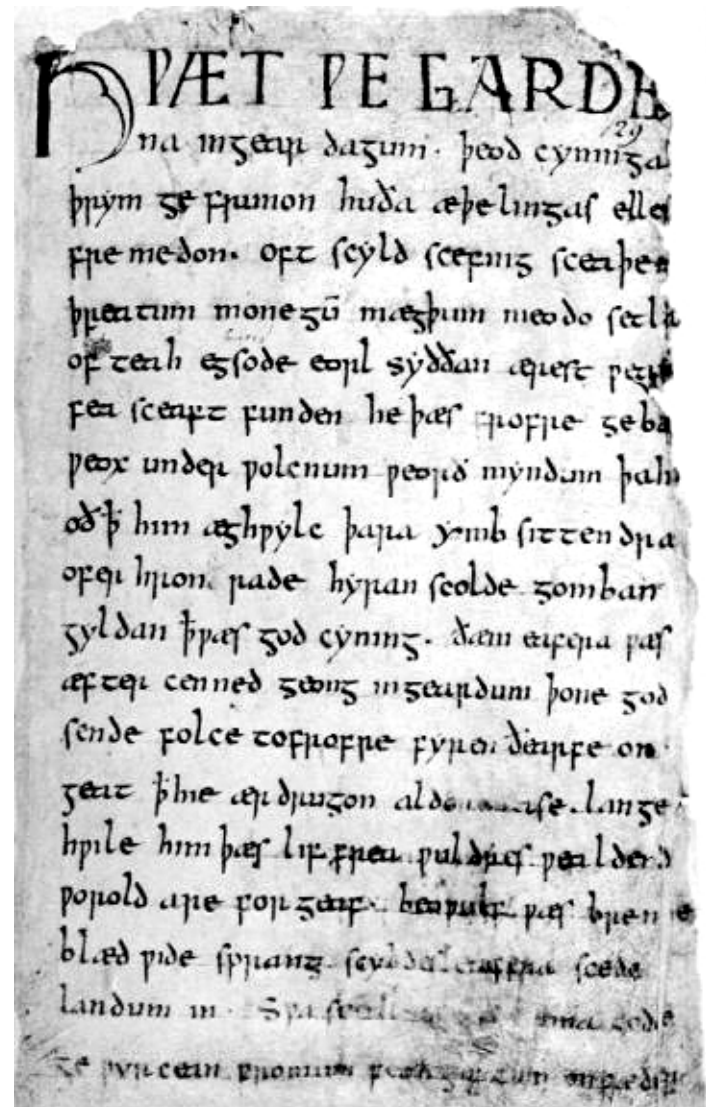 HǷÆT ǷE GARDE
129
na ingear dagum. þeod cyninga
þrym ge frunon huða æþelingas elle
fre medon. oft scyld scefing sceaþe
þreatum monegū mægþum meodo setla
of teah egsode eorl syððan ærest ƿea
fea sceaft funden he þæs frofre geba
ƿeox under ƿolcnum ƿeorð myndum þah
oð ꝥ him æghƿylc þara ymb sittendra
ofer hron rade hyran scolde gomban
gyldan ꝥ ƿæs god cyning. ðæm eafera ƿæs
æfter cenned geong ingeardum þone god
sende folce tofrofre fyren ðearfe on
geat ꝥ hie ær drugon aldor ase. lange
hƿile him þæs lif frea ƿuldres ƿealdend
ƿorold are for geaf. beoƿulf ƿæs breme
blæd ƿide sprang scyldes eafera scede
landum in. Sƿa gode
ge ƿyrcean fromum feoh giftum